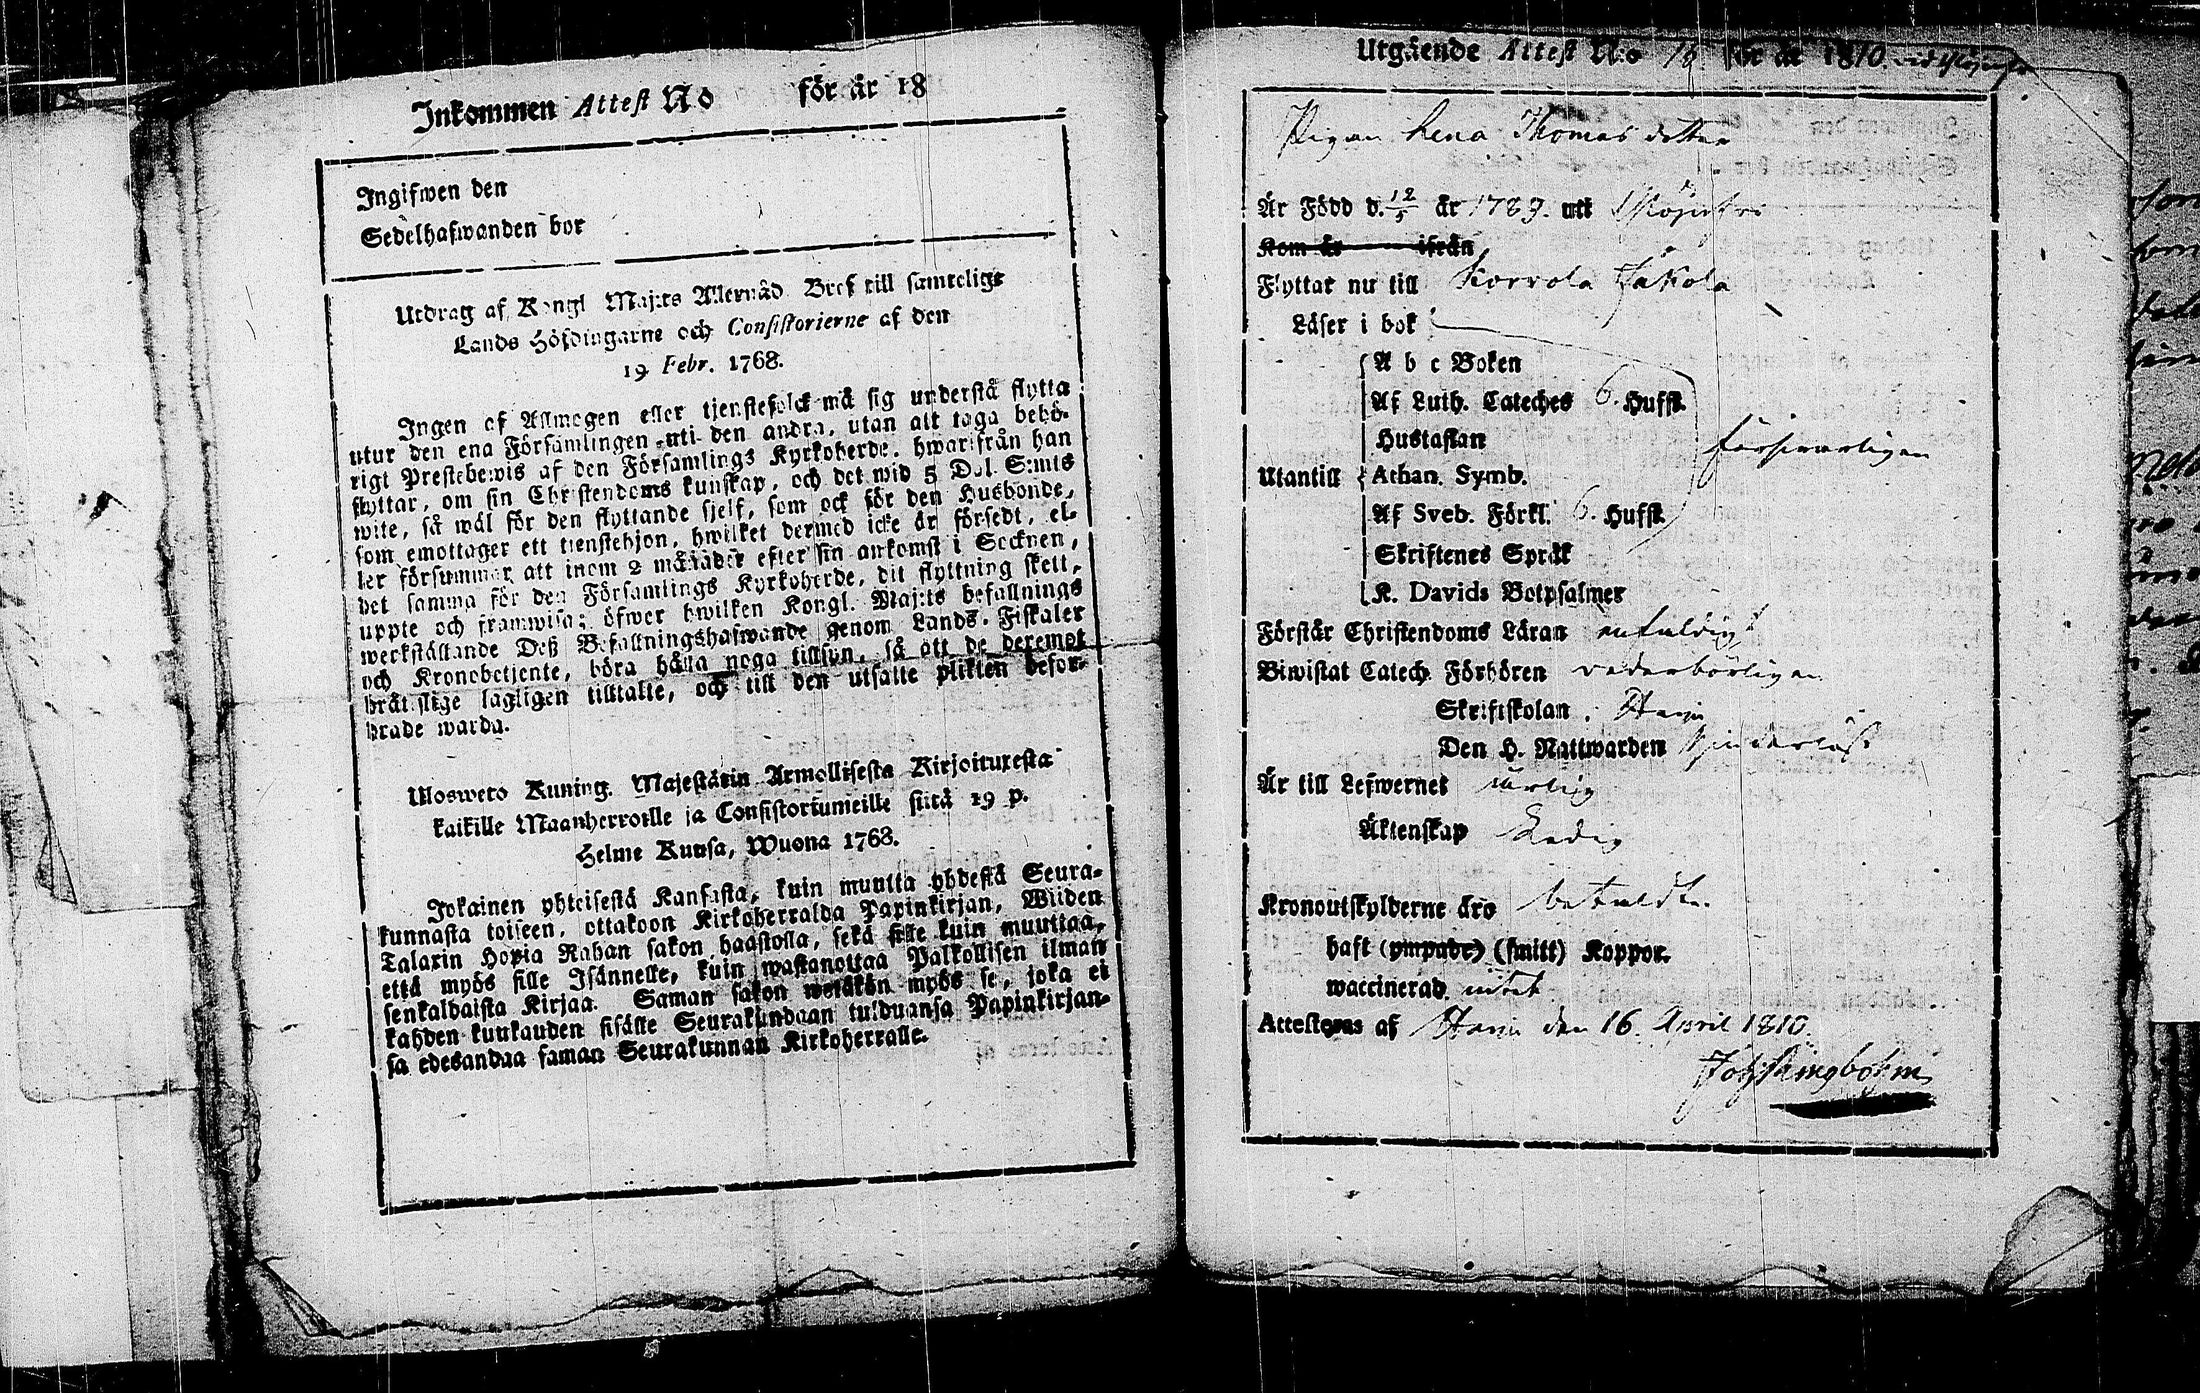 Inkommen Attest No för år 18
Ingifwen den
Sedelhafwanden bor
Utdrag af Kongl Maj:ts Allernåd. Bref till samtelige
Lands Höfdingarne och Consistorierne af den
19 Febr. 1768.
Ingen af Allmogen eller tjenstefolck må sig understå flytta
utur den ena Församlingen uti den andra, utan att taga behö-
rigt Prestebewis af den Församlings Kyrkoherde, hwarifrån han
flyttar, om sin Christendoms kunskap, och det wid 5 Dal. S:mts
wite, så wäl för den flyttande sjelf, som ock för den Husbonde,
som emottager ett tjenstehjon, hwilket dermed icke är försedt, el-
ler försummar att inom 2 månader efter sin ankomst i Socknen,
det samma för den Församlings Kyrkoherde, dit flyttning skett,
uppte och framwisa; öfwer hwilken Kongl. Maj:ts befallnings
werkställande Deß Befallningshafwande genom Lands-Fiskaler
och Kronobetjente, böra hålla noga tillsyn, så att de deremot
bråttslige lagligen tilltalte, och till den utsatte plikten befor-
drade warda.
Uloswето Kuning. Majestätin Armollisesta Kirjoituxesta
kaikille Maanherroille ja Consistoriumeille siitä 19 p.
Helme Kuusa, Wuona 1768.
Jokainen yhteisestä Kansasta, kuin muutta yhdestä Seura-
kunnasta toiseen, ottakoon Kirkoherralda Papinkirjan, Wiiden
Talarin Hopia Rahan sakon haastolla, sekä sille kuin muuttaa,
että myös sille Isännelle, kuin wastanottaa Palkollisen ilman
senkaldaista Kirjaa. Saman sakon wetäkön myös se, joka ei
kahden kuukauden sisälle Seurakundaan tulduansa Papinkirjan-
sa edesandaa saman Seurakunnan Kirkoherralle.
Utgående Attest No 16 för år 1810.
Pigan Lena Thomas dotter
Är Född d. 12/5 år 1789. uti
Kom år ifrån
Flyttar nu till Korrola Jakola
Läser i bok
A b c Boken
Af Luth. Cateches 6. Hufst.
Hustaflan försvarligen
Utantill Athan. Symb.
Af Sveb. Förkl. 6. Hufst.
Skriftenes Språk
K. Davids Botpsalmer
Förstår Christendoms Läran enfaldigt
Biwistat Catech. Förhören vederbörligen
Skriftskolan
Den H. Nattwarden
Är till Lefwernet ärlig
Äktenskap Ledig
Kronoutskylderne äro betalde.
haft (ympade) (smitt) Koppor.
waccinerad. intet
Attesteras af den 16. April 1810.